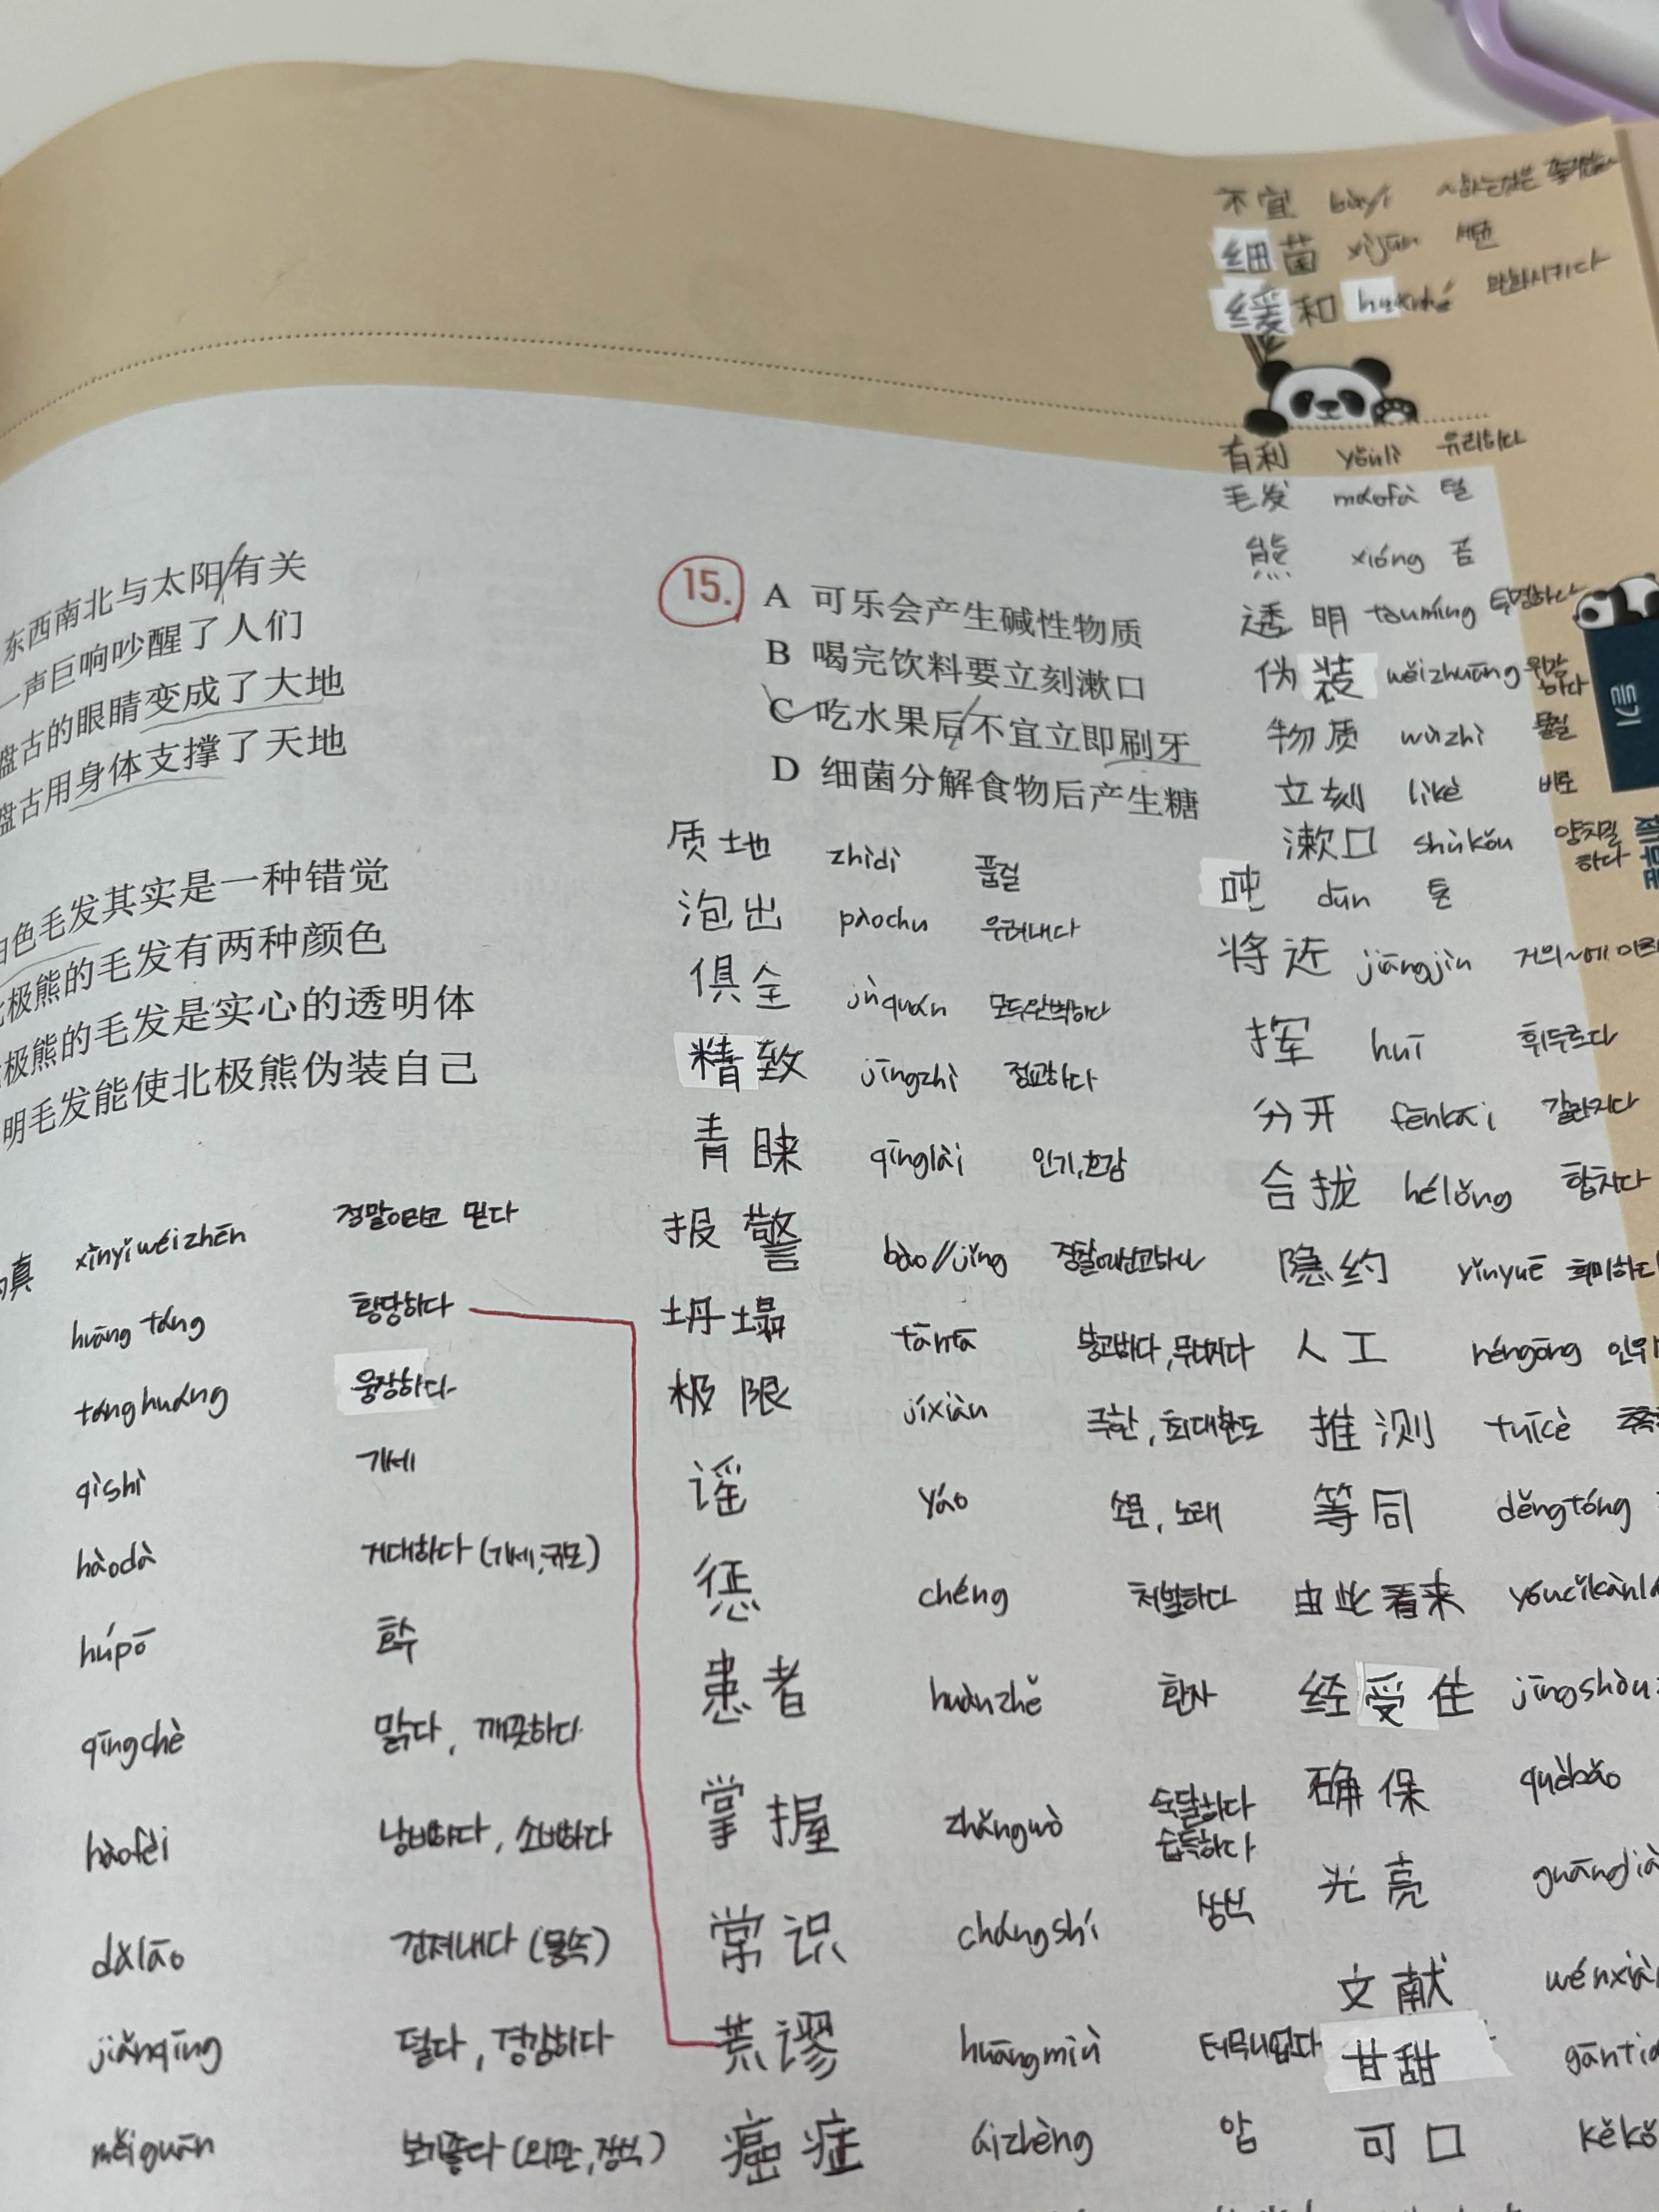 东西南北与太阳有关
一声巨响吵醒了人们
盘古的眼睛变成了大地
盘古用身体支撑了天地
白色毛发其实是一种错觉
北极熊的毛发有两种颜色
极熊的毛发是实心的透明体
明毛发能使北极熊伪装自己
真 xìnyǐwéizhēn 정말이라고 믿다
huāng táng 황당하다
táng huáng 웅장하다
qìshì 기세
hàodà 거대하다 (기세, 규모)
húpō 호수
qīngchè 맑다, 깨끗하다
hàofèi 낭비하다, 소비하다
dǎlāo 건져내다 (물속)
jiǎnqīng 덜다, 경감하다
měiguān 보기좋다 (외관, 장식)
15. A 可乐会产生碱性物质
B 喝完饮料要立刻漱口
C 吃水果后不宜立即刷牙
D 细菌分解食物后产生糖
质地 zhìdì 품질
泡出 pàochu 우려내다
俱全 jùquán 모두완벽하다
精致 jīngzhì 정교하다
青睐 qīnglài 인기, 호감
报警 bào//jǐng 경찰에신고하다
坍塌 tāntā 붕괴하다, 무너지다
极限 jíxiàn 극한, 최대한도
谣 yáo 소문, 노래
惩 chéng 처벌하다
患者 huànzhě 환자
掌握 zhǎngwò 숙달하다
습득하다
常识 chángshí 상식
荒谬 huāngmiù 터무니없다
癌症 áizhèng 암
不宜 bùyí ~하는것은 좋지않다
细菌 xìjūn 세균
缓和 huǎnhé 완화시키다
有利 yǒulì 유리하다
毛发 máofà 털
熊 xióng 곰
透明 tòumíng 투명하다
伪装 wěizhuāng 위장
하다
物质 wùzhì 물질
立刻 lìkè 바로
漱口 shùkǒu 양치질
하다
吨 dūn 톤
将近 jiāngjìn 거의~에 이르
挥 huī 휘두르다
分开 fēnkāi 갈라지다
合拢 hélǒng 합치다
隐约 yǐnyuē 희미하다
人工 réngōng 인위
推测 tuīcè 추측
等同 děngtóng
由此看来 yóucǐkànlá
经受住 jīngshòuz
确保 quèbǎo
光亮 guānglià
文献 wénxià
甘甜 gāntiá
可口 kěkǒ
듣기